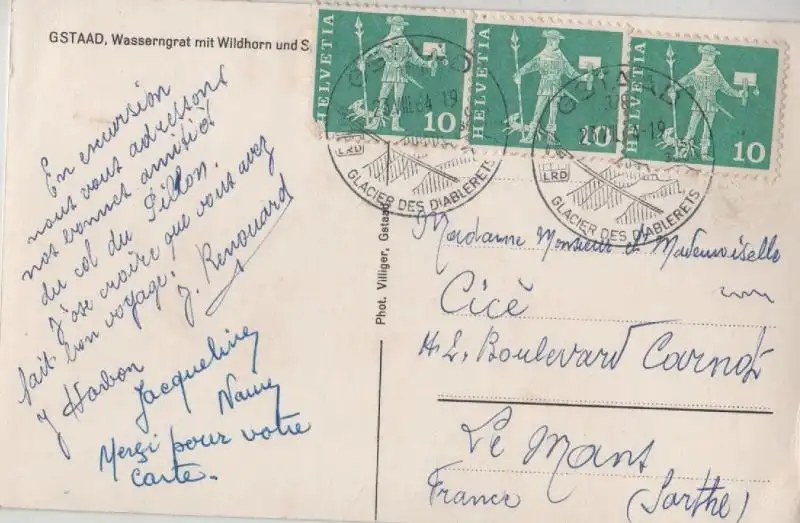 GSTAAD, Wasserngrat mit Wildhorn und S
HELVETIA 10
HELVETIA 10
HELVETIA 10
GSTAAD
23.VII.64-19
GLACIER DES DIABLERETS
LRD
GSTAAD
GLACIER DES DIABLERETS
LRD
En excursion
nous vous adressons
nos bonnes amitiés
du col du Pillon.
J'ose croire que vous avez
fait bon voyage.
J. Renouard
Jacqueline
Merci pour votre
carte.
Phot. Villiger, Gstaad
Madame Monsieur et Mademoiselle
Cicé
42 Boulevard Carnot
Le Mans
France (Sarthe)